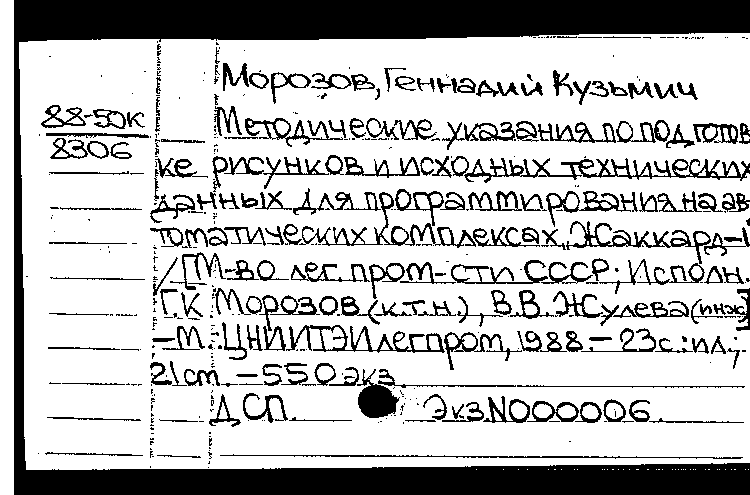 Морозов, Геннадий Кузьмич
88-50К
8306
Методические указания по подготов
ке рисунков и исходных технических
данных для программирования на ав-
томатических комплексах „Жаккард-1"
/[М-во лег. пром-сти СССР; Исполн.
Г.К Морозов (к.т.н.), В.В. Жулева (инж)]
–М.: ЦНИИТЭИлегпром, 1988.– 23с.:ил.;
21 см. –550 экз.
ДСП. Экз.N000006.